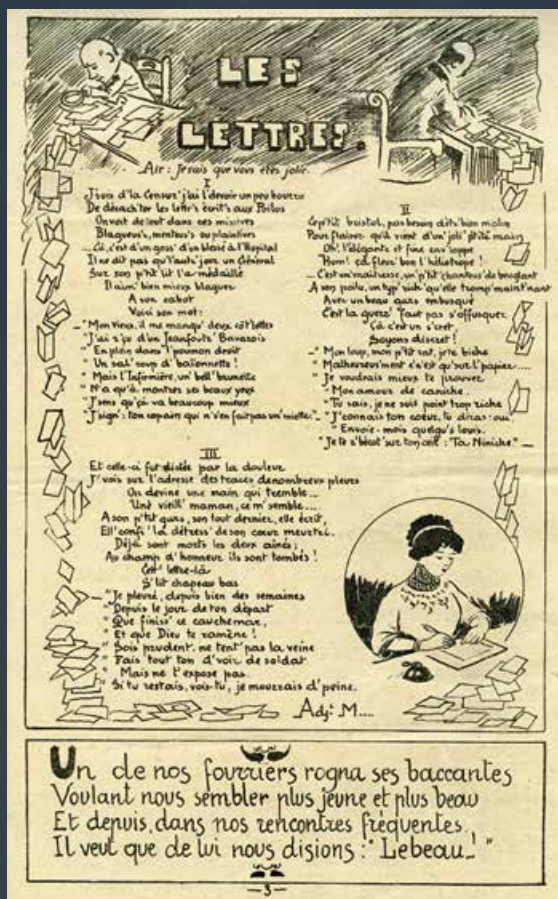 LES
LETTRES.
Air : Je sais que vous êtes jolie.
I
J'suis d'la Censur' j'ai l'devoir un peu bourru
De décach'ter les lettr's écrit's aux Poilus
On voit de tout dans ces missives
Blagueus's, menteus's ou plaintives
_ Çà, c'est d'un goss' d'un blessé à l'Hôpital
Il ne dit pas qu'l'autr' jour un Général
Sur son p'tit lit l'a médaillé
Il aim' bien mieux blaguer
A son cabot
Voici son mot :
_ "Mon vieux, il me manqu' deux côt'lettes
"J'ai r'çu d'un Jeanfoutr' Bavarois
" En plein dans l'poumon droit
" Un sal' coup d'baïonnette !
" Mais l'Infirmière, un' bell' brunette
" N'a qu'à montrer ses beaux yeux
"J'sens qu'ça va beaucoup mieux
"J'sign': ton copain qui n's'en fait pas un' miette."_
II
Cep'tit bristol, pas besoin d'êtr' bien malin
Pour flairer qu'il vient d'un' joli' p'tit' main
Oh! l'élégante et fine env'loppe
Hum! ça fleur' bon l'héliotrope !
_ C'est un' maîtresse, un' p'tit' chanteus' de beuglant
A son poilu, un typ' rich' qu'elle tromp' maint'nant
Avec un beau gars embusqué
C'est la guerr' Faut pas s'offusquer
Çà c'est un s'cret,
Soyons discret !
_ " Mon loup, mon p'tit rat, je te biche
" Malheureus'ment c'n'est qu'sur l'papier....
" Je voudrais mieux te prouver
" Mon amour de caniche.
" Tu sais, je ne suis point trop riche
" J'connais ton cœur, tu diras: oui
" Envoie-mois quelqu's louis.
"Je te z'bécot' sur ton œil : "Ta Niniche." _
III
Et celle-ci fut dictée par la douleur
J'vois sur l'adresse des traces de nombreux pleurs
On devine une main qui tremble ...
Uné vieill' maman, ce m'semble....
A son p'tit gars, son tout dernier, elle écrit,
Ell' confi' la détress' de son cœur meurtri.
Déjà sont morts les deux aînés ;
Au champ d'honneur ils sont tombés !
Cett' lettre-là
S'lit chapeau bas
_ "Je pleure, depuis bien des semaines
"Depuis le jour de ton départ
" Que finiss' ce cauchemar,
" Et que Dieu te ramène !
" Sois prudent, ne tent' pas la veine
" Fais tout ton d'voir de soldat
" Mais ne t'expose pas.
" Si tu restais, vois-tu, je mourrais d'peine.
Adjt M....
Un de nos fourriers rogna ses baccantes
Voulant nous sembler plus jeune et plus beau
Et depuis, dans nos rencontres fréquentes,
Il veut que de lui nous disions : " Lebeau_! "
_3_